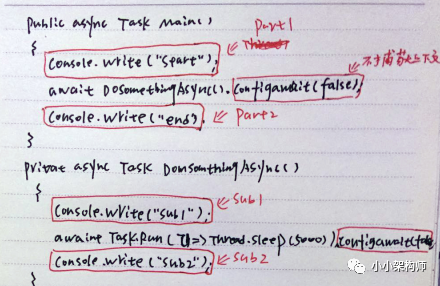 public async Task Main()
Part1
{
Console.Write("Start");
不去捕获上下文
await DoSomethingAsync().Configawait(false);
Console.Write("end"). Part2
}
privat async Task DomsomthingAsync()
{
Sub1
Console.Write("Sub1");
awaint Task.Run(()=> Thread.Sleep(5000)).Configawait(false
Console.Write("Sub2"); Sub2
}
小小架构师